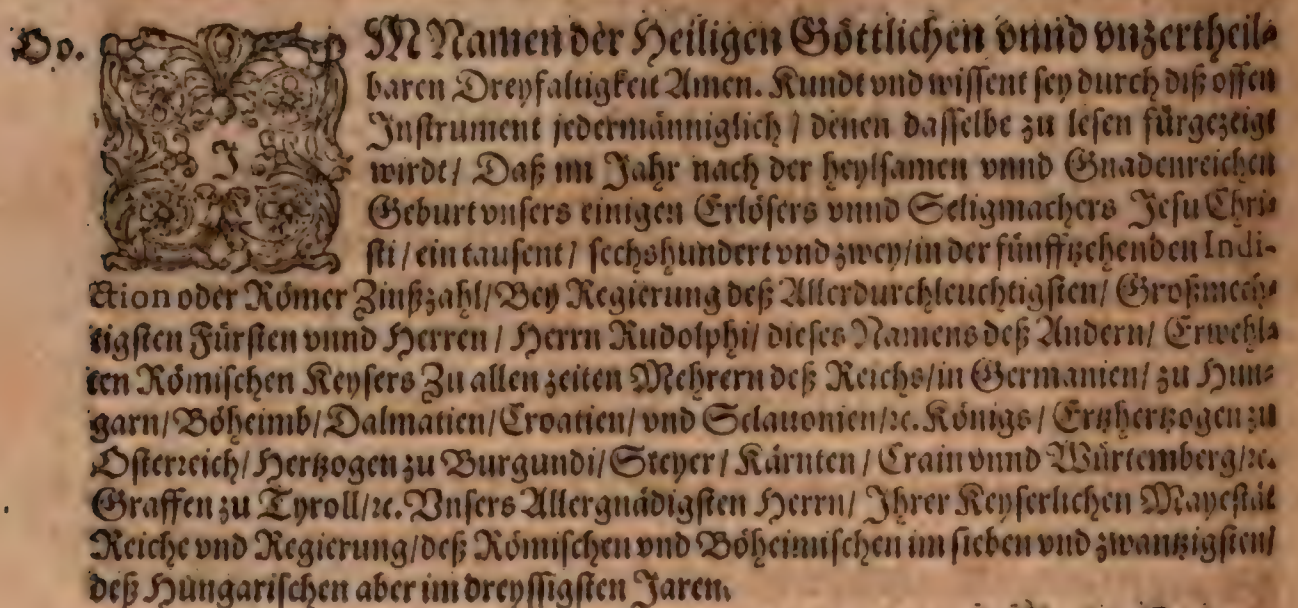 Do. IM Namen der Heiligen Göttlichen vnnd vnzertheil-
baren Dreyfaltigkeit Amen. Kundt vnd wissent sey durch diß offen
Instrument jedermänniglich / denen dasselbe zu lesen fürgezeigt
wirdt / Daß im Jahr nach der heylsamen vnnd Gnadenreichen
Geburt vnsers einigen Erlösers vnnd Seligmachers Jesu Chri-
sti / ein tausent / sechshundert vnd zwey / in der fünfftzehenden Indi-
ction oder Römer Zinßzahl / Bey Regierung deß Allerdurchleuchtigsten / Großmech-
tigsten Fürsten vnnd Herren / Herrn Rudolphi / dieses Namens deß Andern / Erwehl-
ten Römischen Keysers Zu allen zeiten Mehrern deß Reichs / in Germanien / zu Hun-
garn / Böheimb / Dalmatien / Croatien / vnd Sclauonien / ꝛc. Königs / Ertzhertzogen zu
Osterreich / Hertzogen zu Burgundi / Steyer / Kärnten / Crain vnnd Würtemberg / ꝛc.
Graffen zu Tyroll / ꝛc. Vnsers Allergnädigsten Herrn / Ihrer Keyserlichen Mayestät
Reiche vnd Regierung / deß Römischen vnd Böheimischen im sieben vnd zwantzigsten /
deß Hungarischen aber im dreyssigsten Jaren.